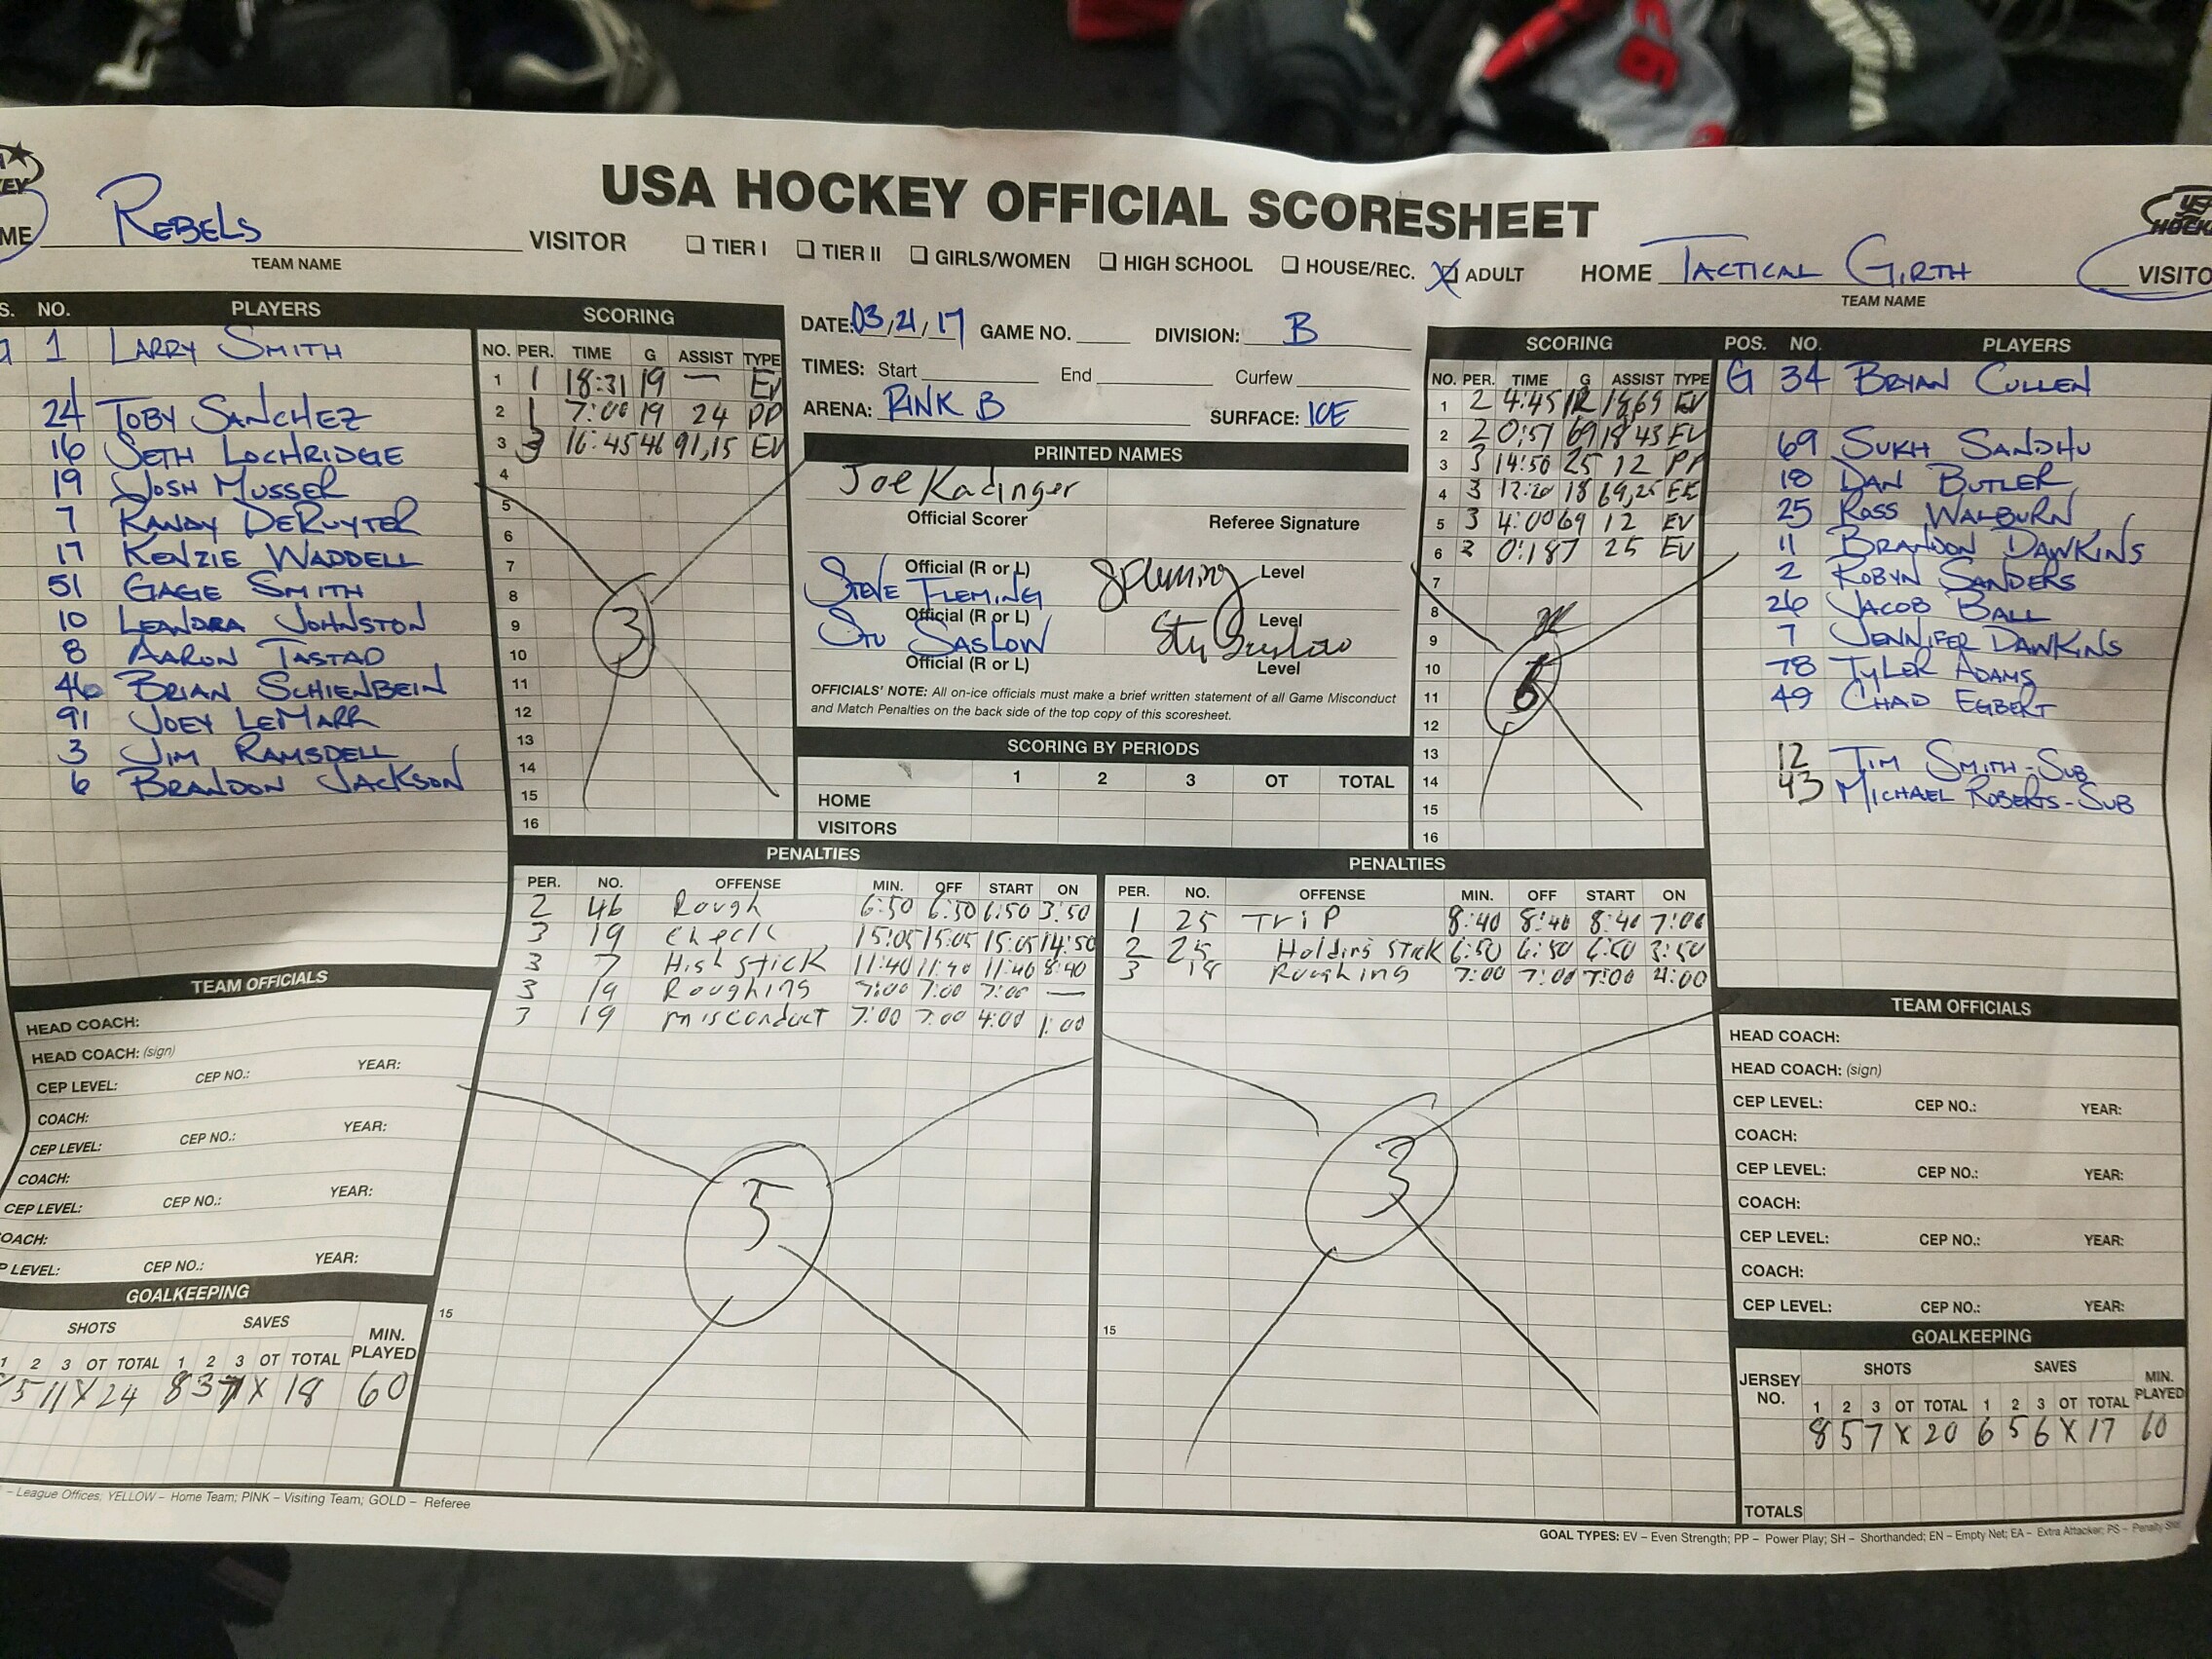 USA HOCKEY OFFICIAL SCORESHEET
REBELS VISITOR
TEAM NAME
TIER I TIER II GIRLS/WOMEN HIGH SCHOOL HOUSE/REC. X ADULT
HOME TACTICAL GIRTH
TEAM NAME
NO. PLAYERS
1 LARRY SMITH
24 TOBY SANCHEZ
16 SETH LOCHRIDGE
19 JOSH MUSSER
7 RANDY DERUYTER
17 KENZIE WADDELL
51 GAGE SMITH
10 LEANDRA JOHNSTON
8 AARON TASTAD
46 BRIAN SCHIENBEIN
91 JOEY LEMARR
3 JIM RAMSDELL
6 BRANDON JACKSON
SCORING
NO. PER. TIME G ASSIST TYPE
1 1 18:31 19 — EV
2 1 7:00 19 24 PP
3 3 16:45 46 91,15 EV
4
5
6
7
8
9
10
11
12
13
14
15
16
3
DATE: 03/21/17 GAME NO. DIVISION: B
TIMES: Start End Curfew
ARENA: RINK B SURFACE: ICE
PRINTED NAMES
Joe Kadinger
Official Scorer Referee Signature
Official (R or L) Level
STEVE FLEMING
Official (R or L) Level
STU SASLOW
Official (R or L) Level
OFFICIALS' NOTE: All on-ice officials must make a brief written statement of all Game Misconduct
and Match Penalties on the back side of the top copy of this scoresheet.
SCORING BY PERIODS
1 2 3 OT TOTAL
HOME
VISITORS
SCORING
NO. PER. TIME G ASSIST TYPE
1 2 4:45 12 18,69 EV
2 2 0:51 69 18 43 EV
3 3 14:50 25 12 PP
4 3 18 69,25
5 3 4:00 69 12 EV
6 0:18 7 25 EV
7
8
9
10
11
12
13
14
15
16
6
POS. NO. PLAYERS
G 34 BRYAN CULLEN
69 SUKH SANDHU
18 DAN BUTLER
25 ROSS WALBURN
11 BRANDON DAWKINS
2 ROBYN SANDERS
26 JACOB BALL
7 JENNIFER DAWKINS
78 TYLER ADAMS
49 CHAD EGBERT
12 TIM SMITH-SUB
43 MICHAEL ROBERTS-SUB
PENALTIES
PER. NO. OFFENSE MIN. OFF START ON
2 46 Rough 6:50 6:50 6:50 3:50
3 19 check 15:05 15:05 15:05 14:50
3 7 High stick 11:40 11:40 11:40 8:40
3 19 Roughing 7:00 7:00 7:00 —
3 19 misconduct 7:00 7:00 4:00 1:00
5
15
PENALTIES
PER. NO. OFFENSE MIN. OFF START ON
1 25 TRIP 8:40 8:40 8:40 7:00
2 25 Holding stick 6:50 6:50 6:50 3:50
3 18 Roughing 7:00 7:00 7:00 4:00
3
15
TEAM OFFICIALS
HEAD COACH:
HEAD COACH: (sign)
CEP LEVEL: CEP NO.: YEAR:
COACH:
CEP LEVEL: CEP NO.: YEAR:
COACH:
CEP LEVEL: CEP NO.: YEAR:
COACH:
LEVEL: CEP NO.: YEAR:
GOALKEEPING
SHOTS SAVES MIN. PLAYED
1 2 3 OT TOTAL 1 2 3 OT TOTAL
5 11 X 24 8 3 7 X 18 60
TEAM OFFICIALS
HEAD COACH:
HEAD COACH: (sign)
CEP LEVEL: CEP NO.: YEAR:
COACH:
CEP LEVEL: CEP NO.: YEAR:
COACH:
CEP LEVEL: CEP NO.: YEAR:
COACH:
CEP LEVEL: CEP NO.: YEAR:
GOALKEEPING
JERSEY NO. SHOTS SAVES MIN. PLAYED
1 2 3 OT TOTAL 1 2 3 OT TOTAL
8 5 7 X 20 6 5 6 X 17 60
TOTALS
– League Offices; YELLOW – Home Team; PINK – Visiting Team; GOLD – Referee
GOAL TYPES: EV – Even Strength; PP – Power Play; SH – Shorthanded; EN – Empty Net; EA – Extra Attacker; PS – Penalty Shot